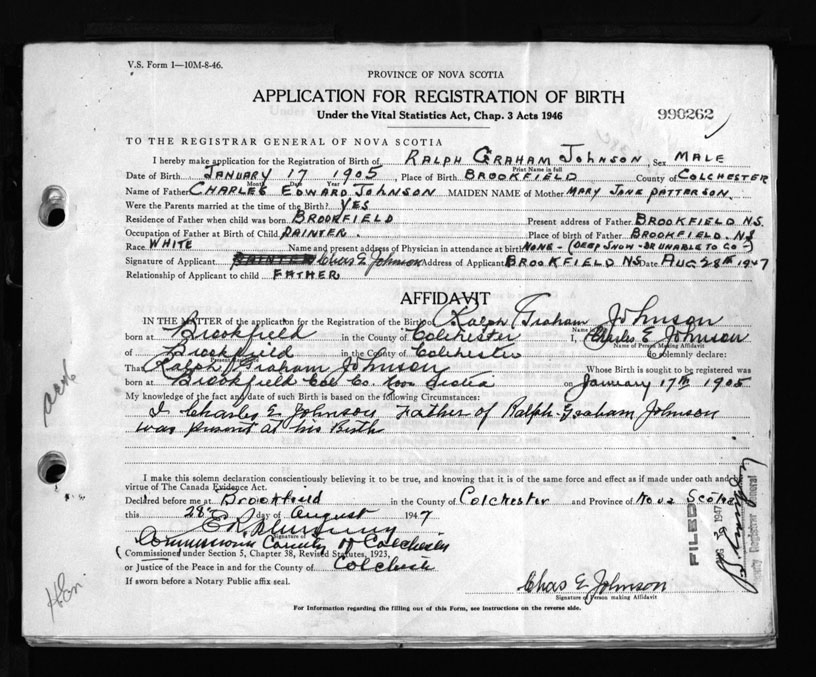 V.S. Form 1—10M-8-46.
PROVINCE OF NOVA SCOTIA
APPLICATION FOR REGISTRATION OF BIRTH
Under the Vital Statistics Act, Chap. 3 Acts 1946
990262
TO THE REGISTRAR GENERAL OF NOVA SCOTIA
I hereby make application for the Registration of Birth of RALPH GRAHAM JOHNSON, Sex MALE
Print Name in full
Date of Birth JANUARY 17 1905, Place of Birth BROOKFIELD County of COLCHESTER
Month Date Year
Name of Father CHARLES EDWARD JOHNSON MAIDEN NAME of Mother MARY JANE PATTERSON.
Were the Parents married at the time of the Birth? YES
Residence of Father when child was born BROOKFIELD Present address of Father BROOKFIELD N.S.
Occupation of Father at Birth of Child PAINTER. Place of birth of Father BROOKFIELD. N.S
Race WHITE Name and present address of Physician in attendance at birth NONE - (DEEP SNOW - DR UNABLE TO GO -)
Signature of Applicant Chas E Johnson Address of Applicant BROOKFIELD NS Date AUG 28th 1947
Relationship of Applicant to child FATHER
AFFIDAVIT
IN THE MATTER of the application for the Registration of the Birth of Ralph Graham Johnson
Name in full
born at Brookfield in the County of Colchester I, Charles E Johnson
Name of Person Making Affidavit
of Brookfield in the County of Colchester do solemnly declare:
Present Address
That Ralph Graham Johnson Whose Birth is sought to be registered was
born at Brookfield Col. Co. Nova Scotia on January 17th 1905
My knowledge of the fact and date of such Birth is based on the following Circumstances:
I Charles E Johnson, Father of Ralph Graham Johnson
was present at his Birth
I make this solemn declaration conscientiously believing it to be true, and knowing that it is of the same force and effect as if made under oath and by
virtue of The Canada Evidence Act.
Declared before me at Brookfield in the County of Colchester and Province of Nova Scotia
this 28th day of August 1947
Signature of
Commissioner County of Colchester
(Commissioned under Section 5, Chapter 38, Revised Statutes, 1923,
or Justice of the Peace in and for the County of Colchester
If sworn before a Notary Public affix seal.
Chas E Johnson
Signature of Person making Affidavit
For Information regarding the filling out of this Form, see instructions on the reverse side.
FILED
AUG 30 1947
Deputy Registrar General